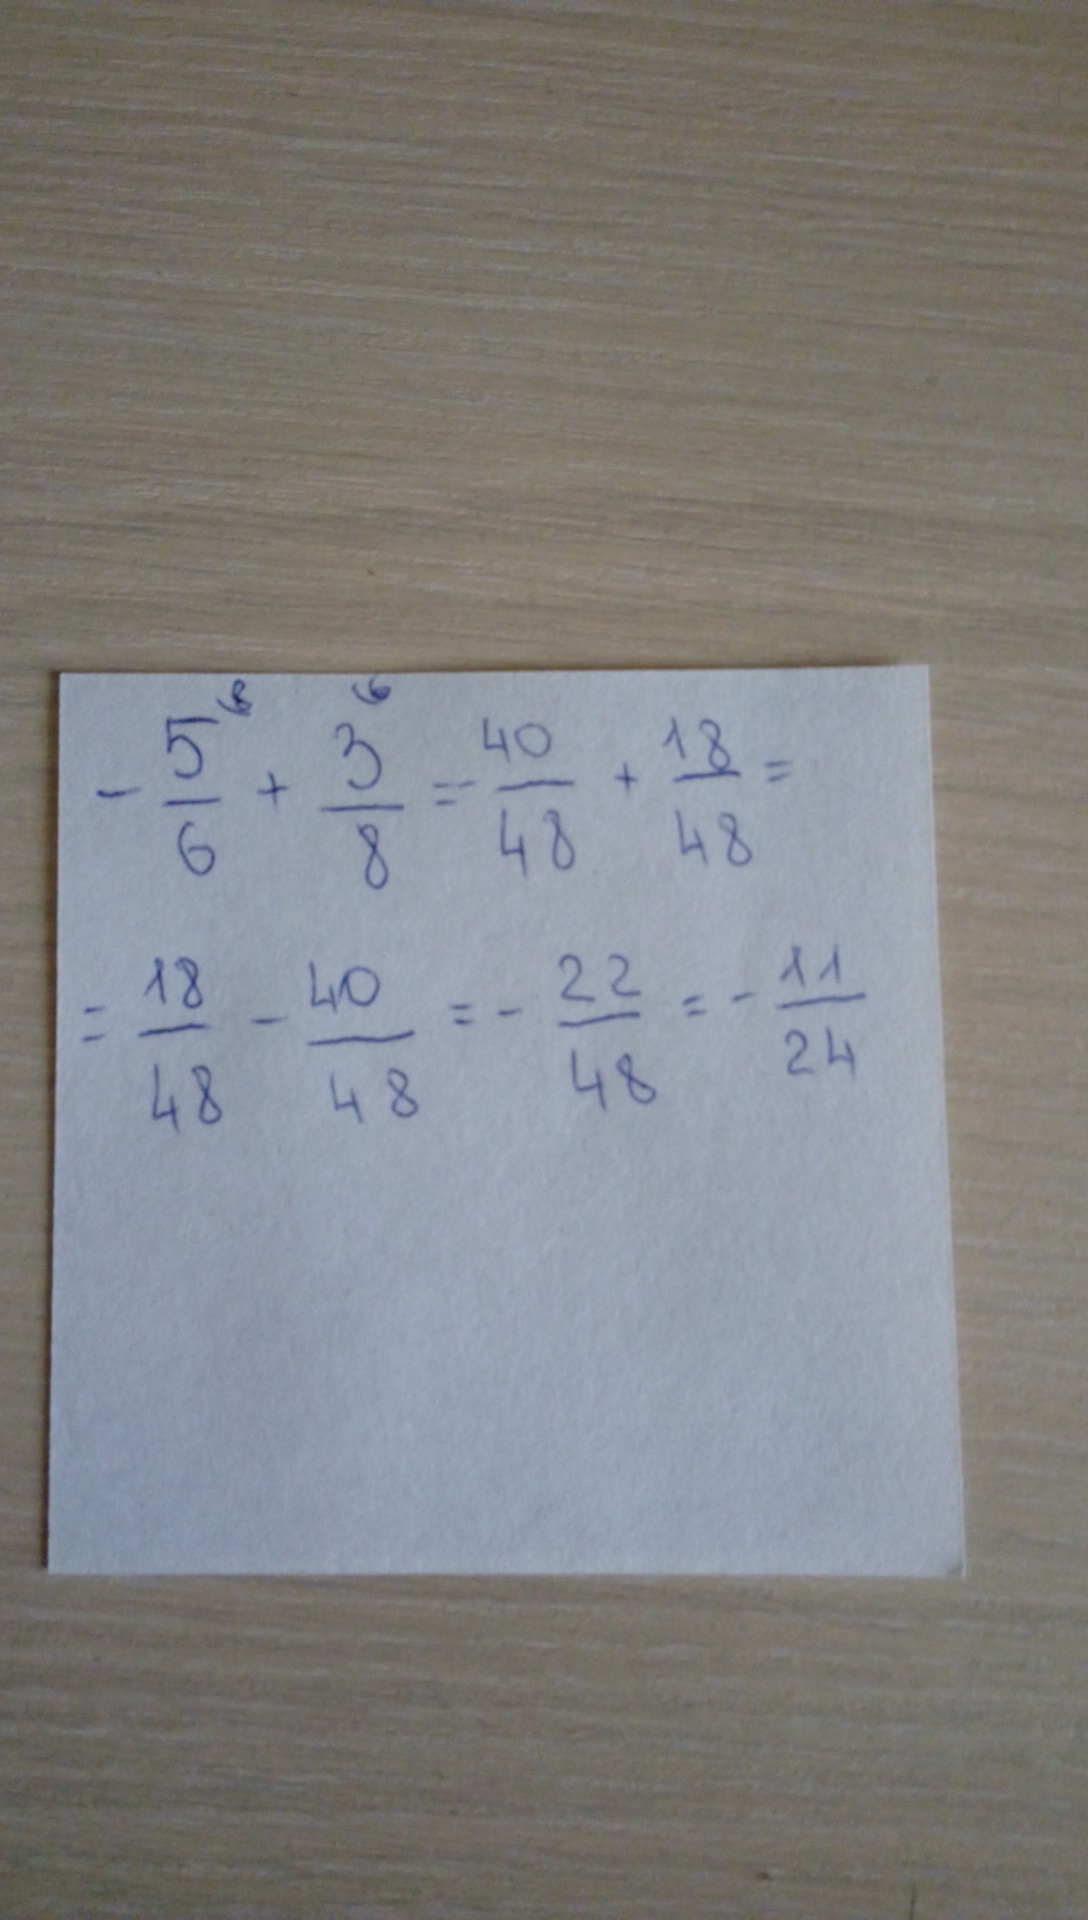 - 5/6 ⁸ + 3/8 ⁶ = - 40/48 + 18/48 =
= 18/48 - 40/48 = - 22/48 = - 11/24